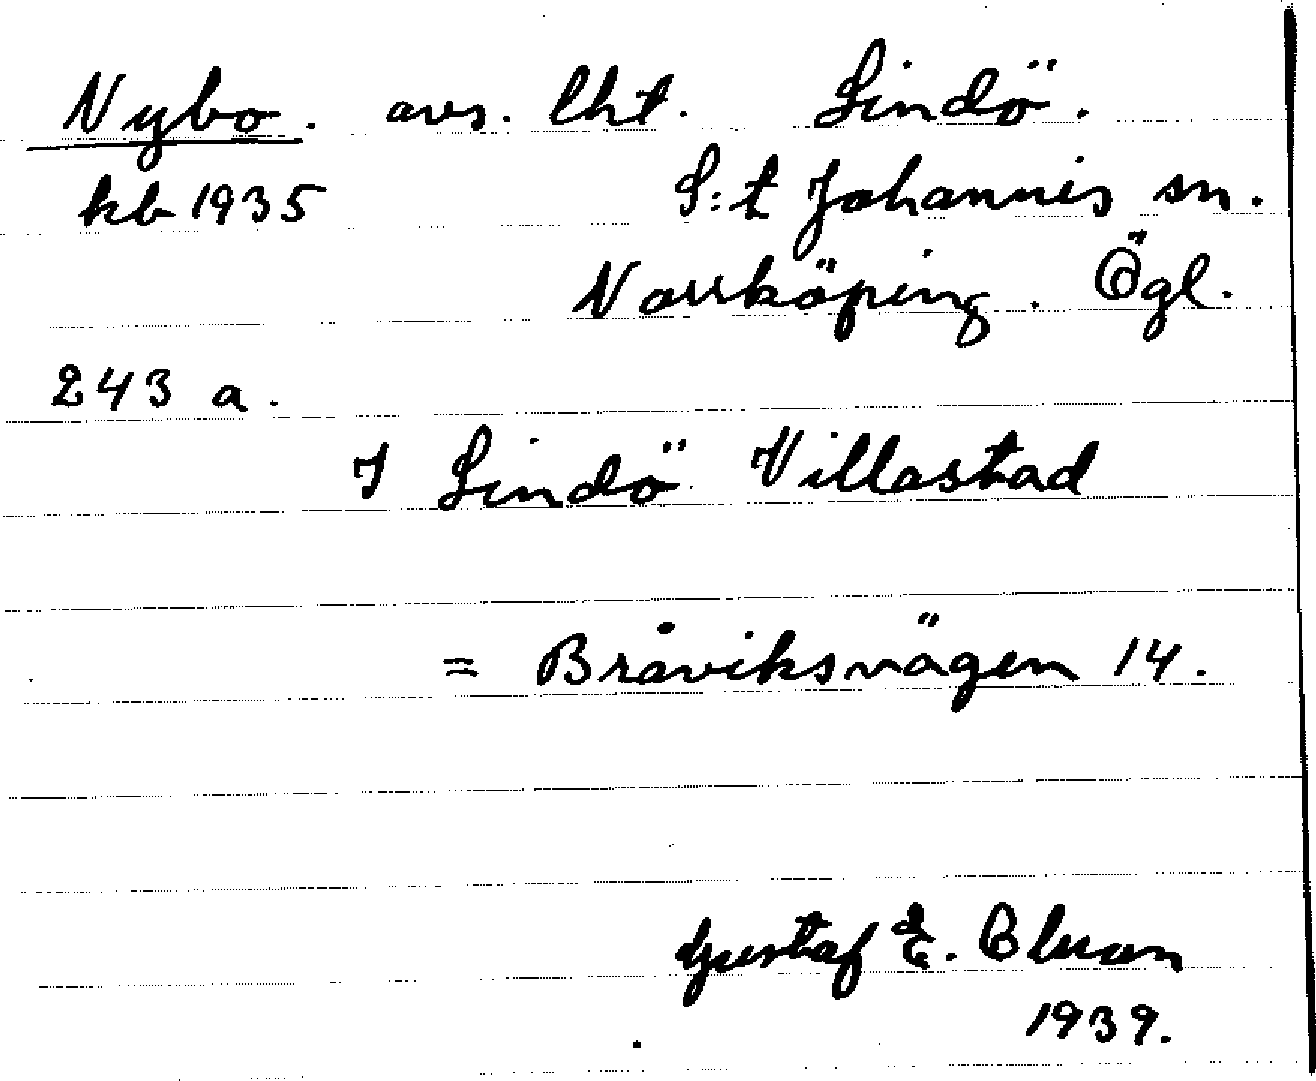 Nybo. avs. lht. Lindö.
kb 1935 S:t Johannis sn.
Norrköping. Ögl.
243 a.
I Lindö Villastad
= Bråviksvägen 14.
Gustaf E.
1939.